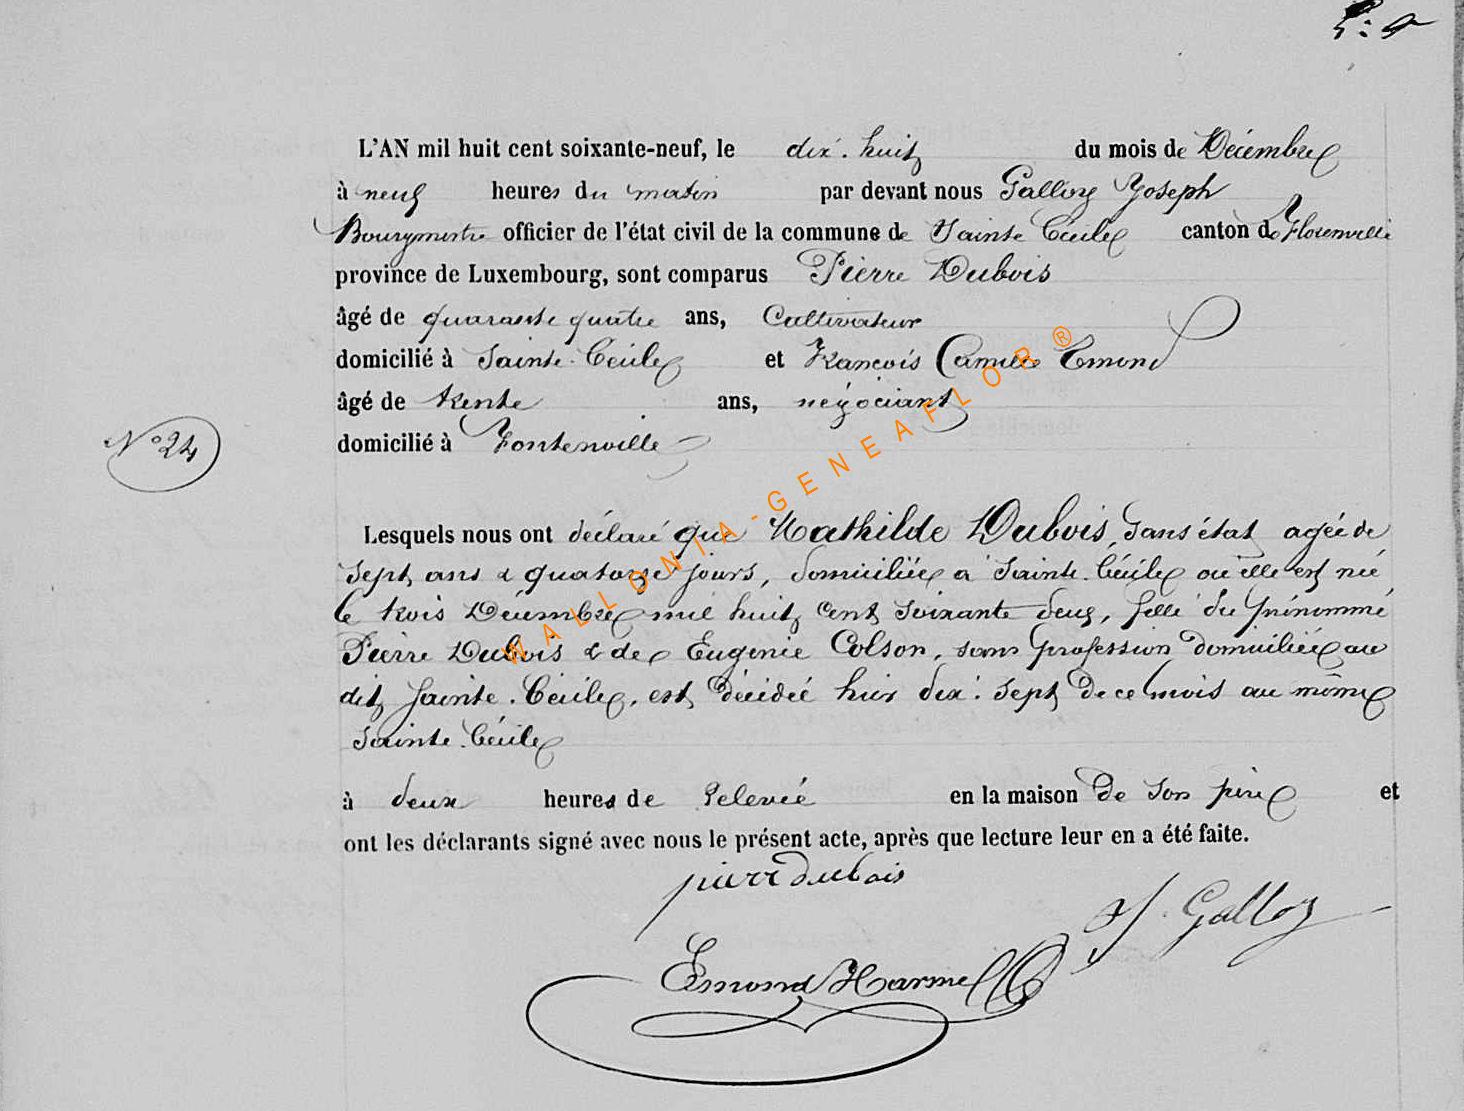 L'AN mil huit cent soixante-neuf, le dix-huit du mois de Décembre
à neuf heures du matin par devant nous Galloy Joseph
Bourgmestre officier de l'état civil de la commune de Sainte Cécile canton de Florenville
province de Luxembourg, sont comparus Pierre Dubois
âgé de quarante quatre ans, Cultivateur
domicilié à Sainte-Cécile et François Camille Emond
âgé de trente ans, négociant
N° 24
domicilié à Fontenoille
Lesquels nous ont déclaré que Mathilde Dubois, sans état agée de
sept ans & quatorze jours, domiciliée à Sainte-Cécile où elle est née
le trois Décembre mil huit cent soixante deux, fille du prénommé
Pierre Dubois & de Eugenie Colson, sans profession domiciliée au
dit Sainte-Cécile, est décédée hier dix-sept de ce mois au même
Sainte-Cécile
à deux heures de relevée en la maison de son père et
ont les déclarants signé avec nous le présent acte, après que lecture leur en a été faite.
pierr dubois
J. Galloy
Emond Harmel
WALLONIA-GENEAFLOR®